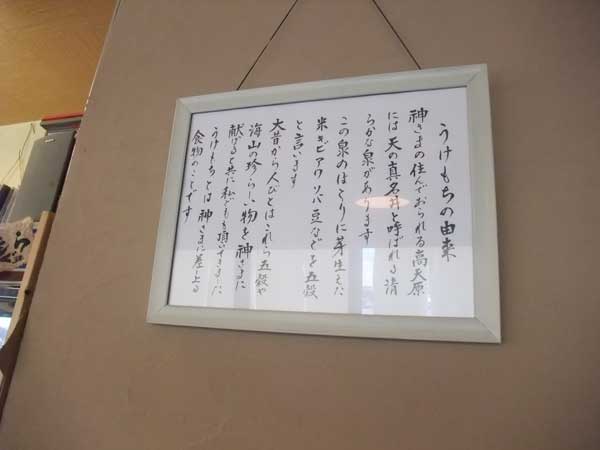 うけもちの由来
神さまの住んでおられる高天原
には天の真名井と呼ばれる清
らかな泉があります
この泉のほとりに芽生えた
米キビアワソバ豆などを五穀
と言います
大昔から人びとはこれら五穀や
海山の珍らしい物を神さまに
献げると共に私どもも頂いてきました
うけもちとは神さまに差し上る
食物のことです